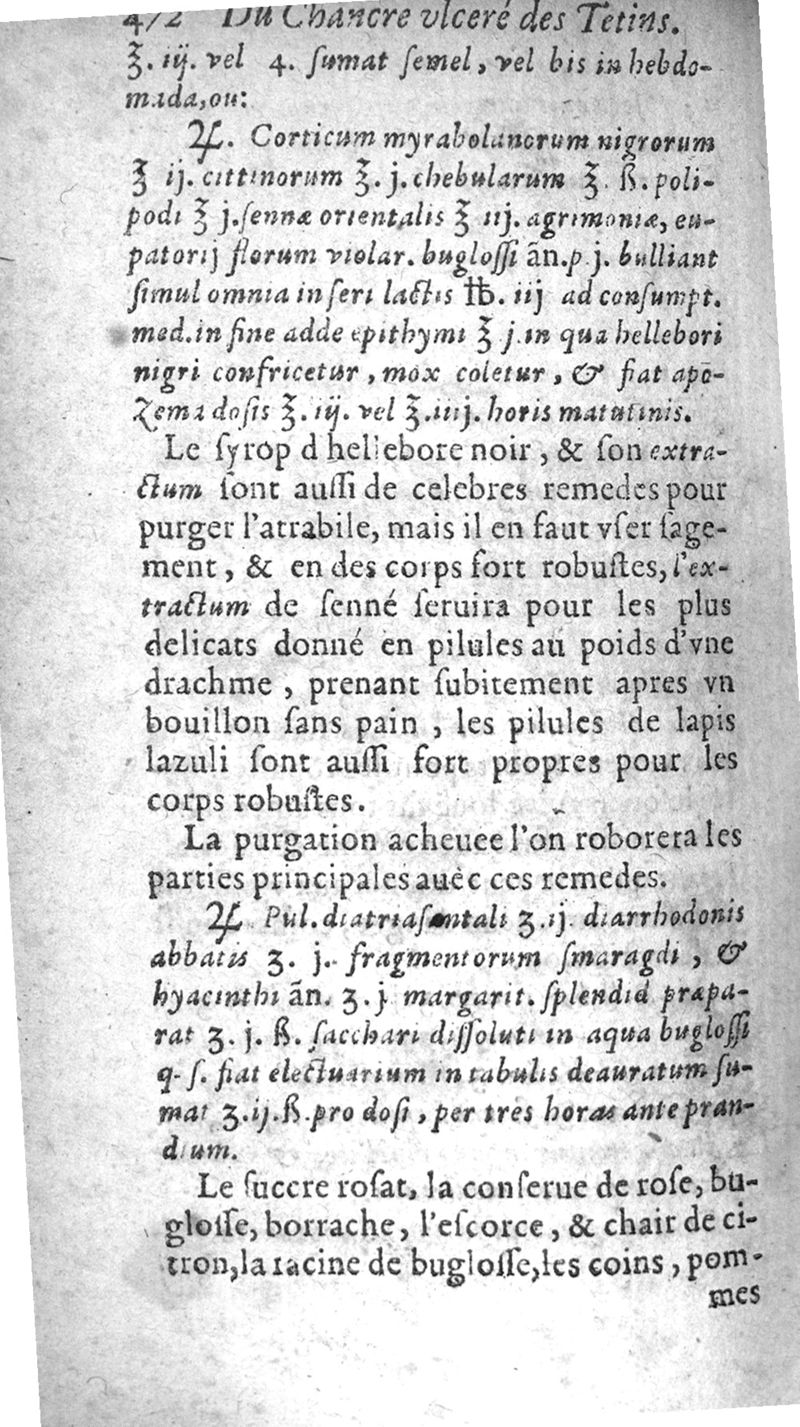 472 Du Chancre vlceré des Tetins.
℥. iij. vel 4. ſumat ſemel, vel bis in hebdo-
mada, ou:
♃. Corticum myrabolanorum nigrorum
℥ ij. cittinorum ℥. j. chebularum ℥. ß. poli-
podi ℥ j. ſennæ orientalis ℥ iij. agrimoniæ, eu-
patorij florum violar. bugloſſi ān. p j. bulliant
ſimul omnia in ſeri lactis ℔. iij ad conſumpt.
med. in fine adde epithymi ℥ j. in qua hellebori
nigri confricetur, mox coletur, & fiat apo-
zema doſis ℥. iij. vel ℥. iiij. horis matutinis.
Le ſyrop d'hellebore noir, & ſon extra-
ctum ſont auſſi de celebres remedes pour
purger l'atrabile, mais il en faut vſer ſage-
ment, & en des corps fort robuſtes, l'ex-
tractum de ſenné ſeruira pour les plus
delicats donné en pilules au poids d'vne
drachme, prenant ſubitement apres vn
bouillon ſans pain, les pilules de lapis
lazuli ſont auſſi fort propres pour les
corps robuſtes.
La purgation acheuee l'on roborera les
parties principales auec ces remedes.
♃. Pul. diatriaſantali ʒ. ij. diarrhodonis
abbatis ʒ. j. fragmentorum ſmaragdi, &
hyacinthi ān. ʒ. j margarit. ſplendid præpa-
rat ʒ. j. ß. ſacchari diſſoluti in aqua bugloſſi
q. ſ. fiat electuarium in tabulis deauratum ſu-
mat ʒ. ij. ß. pro doſi, per tres horas ante pran-
dium.
Le ſuccre roſat, la conſerue de roſe, bu-
gloſſe, borrache, l'eſcorce, & chair de ci-
tron, la racine de bugloſſe, les coins, pom-
mes